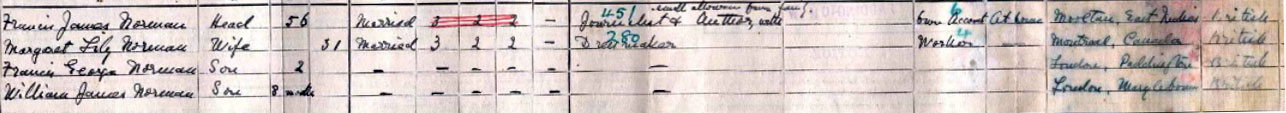 Francis James Norman Head 56 Married 3 2 2 – 451 Journalist & Author, with small allowance from family Own Account At home Mooltan, East Indies British
Margaret Lily Norman Wife 31 Married 3 2 2 – 280 Dressmaker Worker – Montreal, Canada British
Francis George Norman Son 2 – – – – – – London, Paddington British
William James Norman Son 8 mths – – – – – – London, Marylebone British